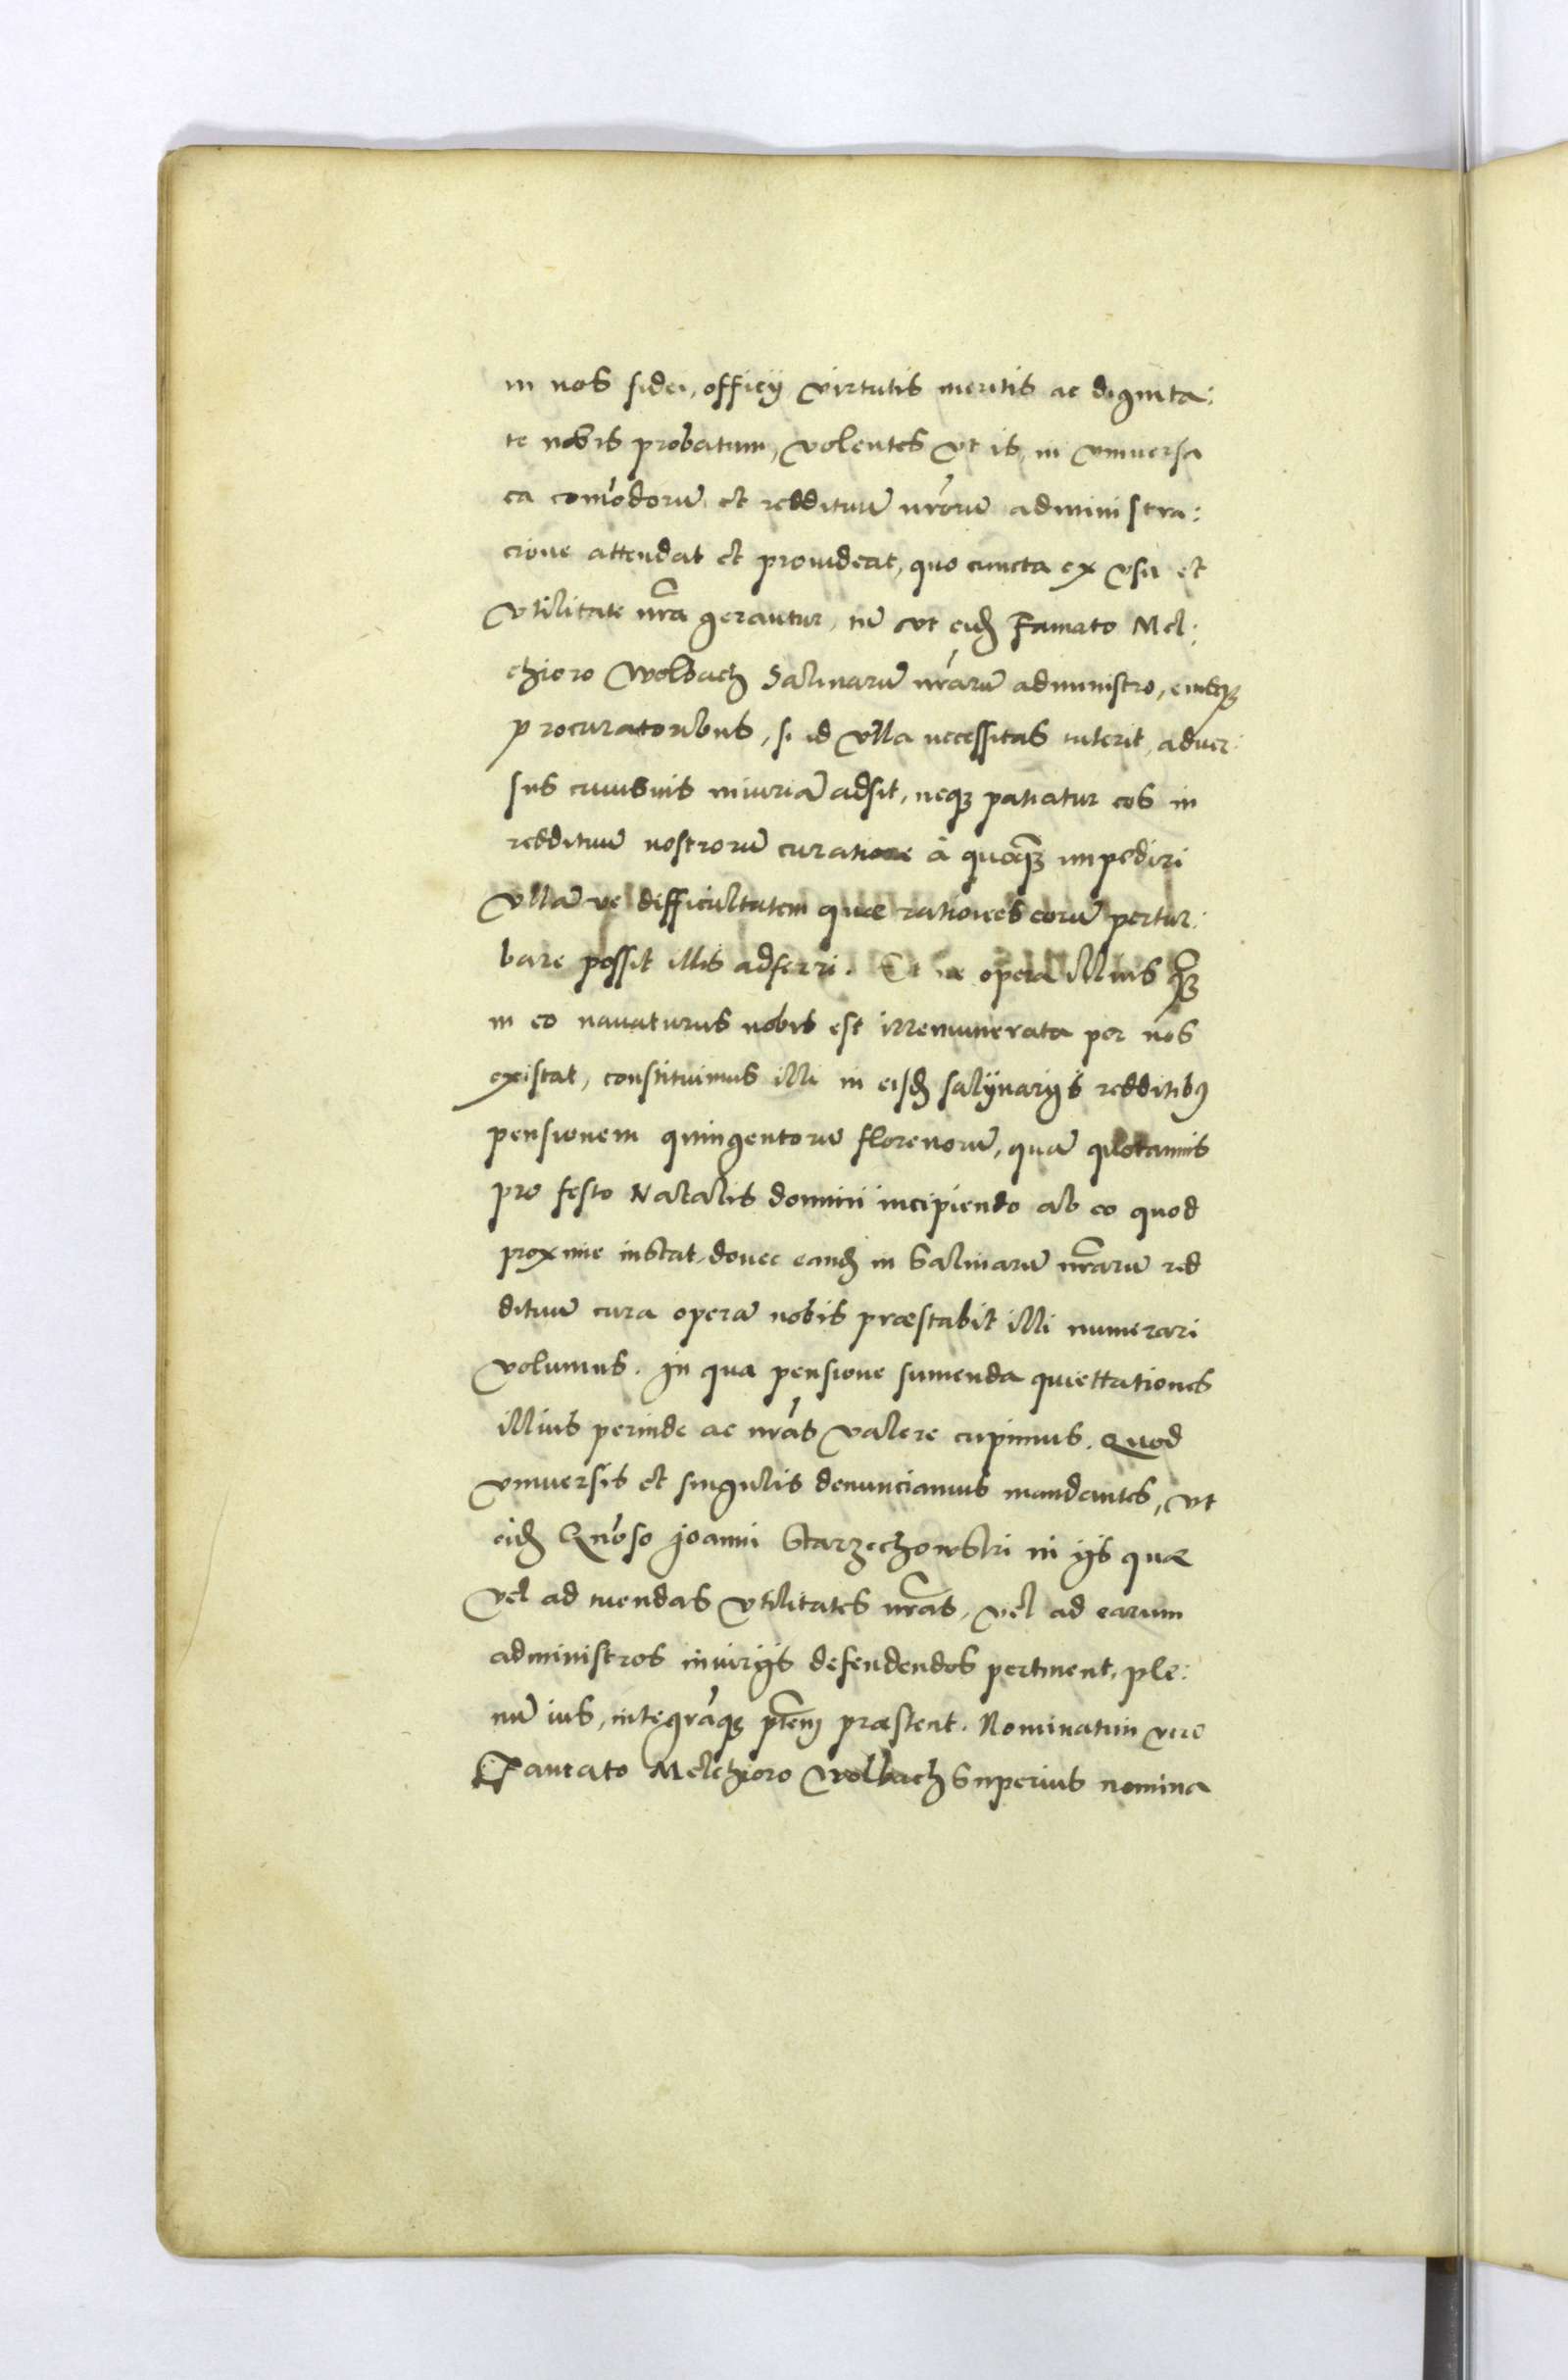 in nos fidei, officij virtutis meritis ac dignita:
te nobis probatum, volentes vt is, in vniuersa
ea com̃odorũ et reddituũ nr̃orũ administra:
cione attendat et prouideat, quo cuncta ex vsu et
vtilitate nr̃a gerantur, tũ vt eid̃ Famato Mel:
chioro Wolbach Salinarũ nr̃arũ administro, eiusq3
procuratoribus, si id vlla necessitas tulerit, aduer:
sus cuiusuis iniuriã adsit, neq3 patiatur eos in
reddituũ nostrorũ curatione à quoq̃3 impediri
vllã ve difficultatem quae rationes eorũ pertur:
bare possit illis adferri. Et ne opera illius q̃3
in eo nauaturus nobis est irremunerata per nos
existat, constituimus illi in eisd̃ salijnarijs redditib9
pensionem quingentorũ florenorũ, quã quotannis
pro festo Natalis domini incipiendo ab eo quod
proxime instat, donec eand̃ in Salinarũ nr̃arũ red
dituũ cura operã nobis praestabit illi numerari
volumus. In qua pensione sumenda quiettationes
illius perinde ac nr̃as valere cupimus. Quod
vniuersis et singulis denunciamus mandantes, vt
eid̃ Gñoso Joanni Starzechowski in ijs quae
vel ad tuendas vtilitates nr̃as, vel ad earum
administros iniurijs defendendos pertinent, ple:
nũ ius, integrãq3 pt̃em praestent. Nominatim vero
Famato Melchioro Wolbach superius nomina